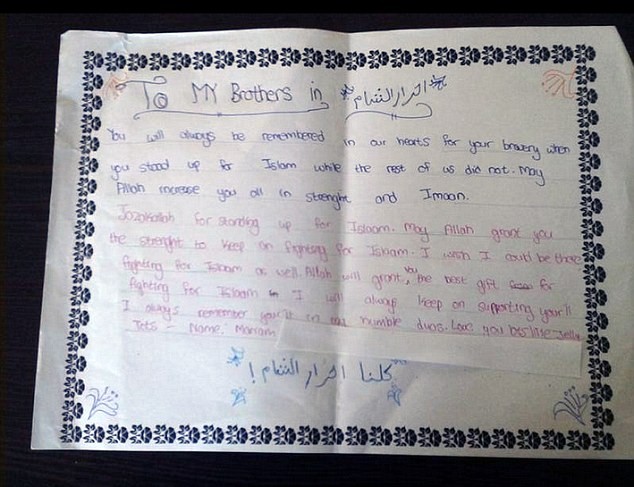 To My Brothers in احرار الشام
You will always be remembered in our hearts for your bravery when
you stood up for Islam while the rest of us did not. May
Allah increase you all in strenght and Imaan.
Jazakallah for standing up for Islaam. May Allah grant you
the strenght to keep on fighting for Islaam. I wish I could be there
fighting for Islaam as well. Allah will grant you the best gift for
fighting for Islaam I will always keep on supporting your'll
I always remember you'll in my humble duas. Love you lots like Jelly
Tots - Name: Mariam
كلنا احرار الشام !